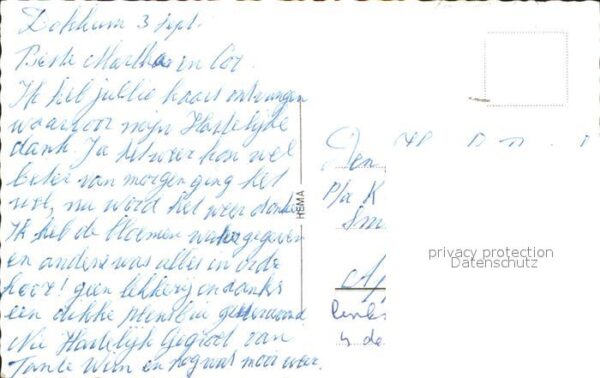 Dokkum 3 sept.
Beste Martha en Cor.
Ik heb jullie kaart ontvangen
waarvoor mijn Hartelijke
dank. Ja het weer kon wel
beter van morgen ging het
nu word het weer donker
Ik heb de bloemen water gegeven
en anders was alles in orde
hoor! geen lekkerij ondanks
een dikke
Hartelijk Gegroet van
Tante Wien en nog wat mooi weer.
HEMA
Den
p/a K
Sm
privacy protection
Datenschutz